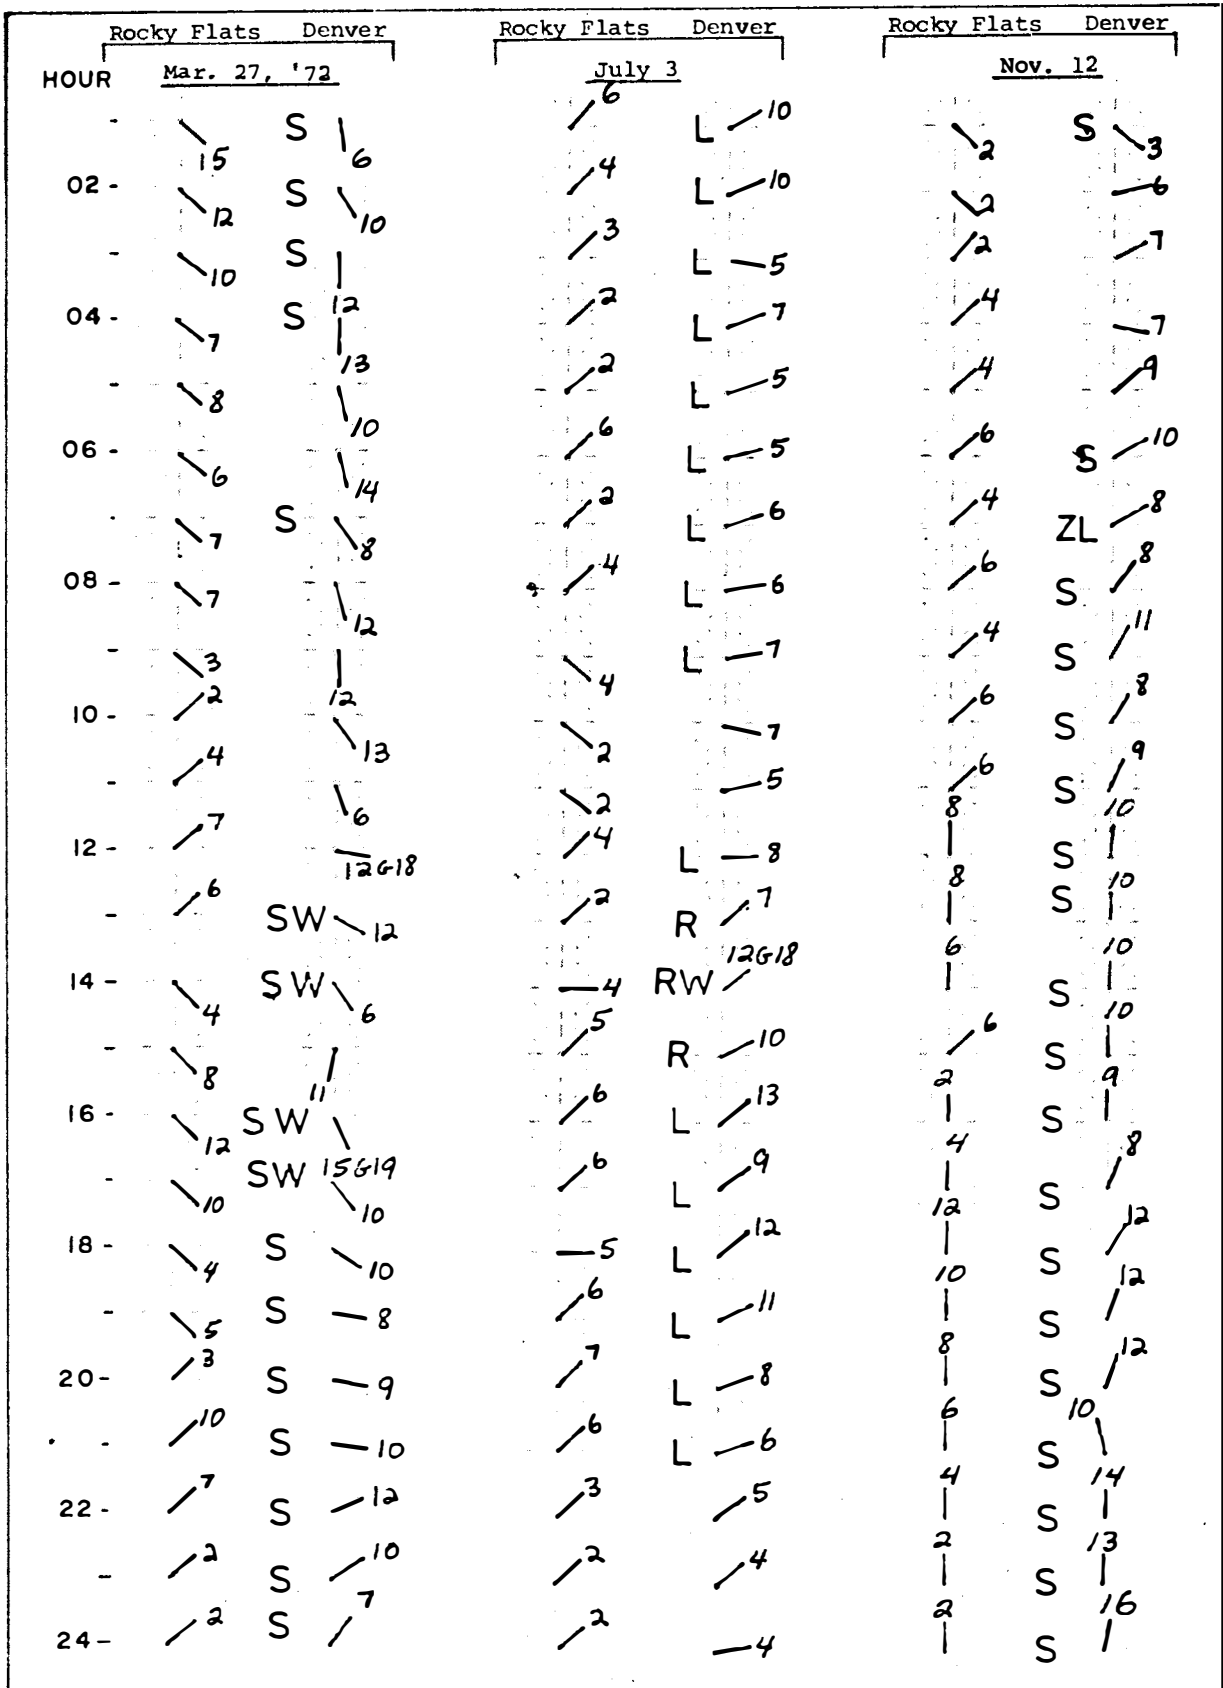 Rocky Flats Denver Rocky Flats Denver Rocky Flats Denver
HOUR Mar. 27, '72 July 3 Nov. 12
- 15 S 6 6 L 10 2 S 3
02 - 12 S 10 4 L 10 2 6
- 10 S 12 3 L 5 2 7
04 - 7 S 13 2 L 7 4 7
- 8 10 2 L 5 4 9
06 - 6 14 6 L 5 6 S 10
- 7 S 8 2 L 6 4 ZL 8
08 - 7 12 4 L 6 6 S 8
- 3 12 4 L 7 4 S 11
10 - 2 13 2 7 6 S 8
- 4 6 2 5 6 S 9
12 - 7 12G18 4 L 8 8 S 10
- 6 SW 12 2 R 7 8 S 10
14 - 4 SW 6 4 RW 12G18 6 S 10
- 8 11 5 R 10 6 S 10
16 - 12 SW 15G19 6 L 13 2 S 9
- 10 SW 10 6 L 9 4 S 8
18 - 4 S 10 5 L 12 12 S 12
- 5 S 8 6 L 11 10 S 12
20 - 3 S 9 7 L 8 8 S 12
- 10 S 10 6 L 6 6 S 10
22 - 7 S 12 3 5 4 S 14
- 2 S 10 2 4 2 S 13
24 - 2 S 7 2 4 2 S 16